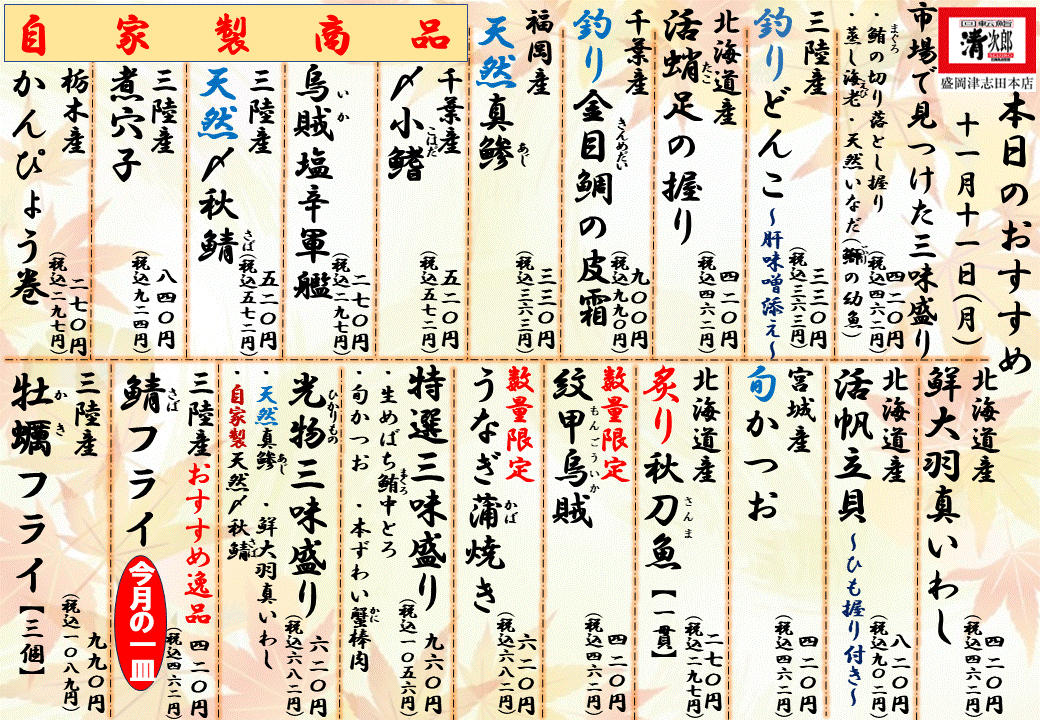 回転鮨
清次郎
盛岡津志田本店
本日のおすすめ
十一月十一日(月)
市場で見つけた三味盛り
・鮪の切り落とし握り
・蒸し海老・天然いなだ(鰤の幼魚)
四二〇円
(税込四六二円)
三陸産
釣りどんこ~肝味噌添え~
三三〇円
(税込三六三円)
北海道産
活蛸足の握り
四二〇円
(税込四六二円)
千葉産
釣り金目鯛の皮霜
九〇〇円
(税込九九〇円)
福岡産
天然真鯵
三三〇円
(税込三六三円)
自家製商品
千葉産
〆小鰭
五二〇円
(税込五七二円)
烏賊塩辛軍艦
二七〇円
(税込二九七円)
三陸産
天然〆秋鯖
五二〇円
(税込五七二円)
三陸産
煮穴子
八四〇円
(税込九二四円)
栃木産
かんぴょう巻
二七〇円
(税込二九七円)
北海道産
鮮大羽真いわし
四二〇円
(税込四六二円)
北海道産
活帆立貝~ひも握り付き~
八二〇円
(税込九〇二円)
宮城産
旬かつお
四二〇円
(税込四六二円)
北海道産
炙り秋刀魚【一貫】
二七〇円
(税込二九七円)
数量限定
紋甲烏賊
四二〇円
(税込四六二円)
数量限定
うなぎ蒲焼き
六二〇円
(税込六八二円)
特選三味盛り
・生めばち鮪中とろ
・旬かつお・本ずわい蟹棒肉
九六〇円
(税込一〇五六円)
光物三味盛り
・天然真鯵・鮮大羽真いわし
・自家製天然〆秋鯖
六二〇円
(税込六八二円)
三陸産おすすめ逸品
鯖フライ
今月の一皿
四二〇円
(税込四六二円)
三陸産
牡蠣フライ【三個】
九九〇円
(税込一〇八九円)